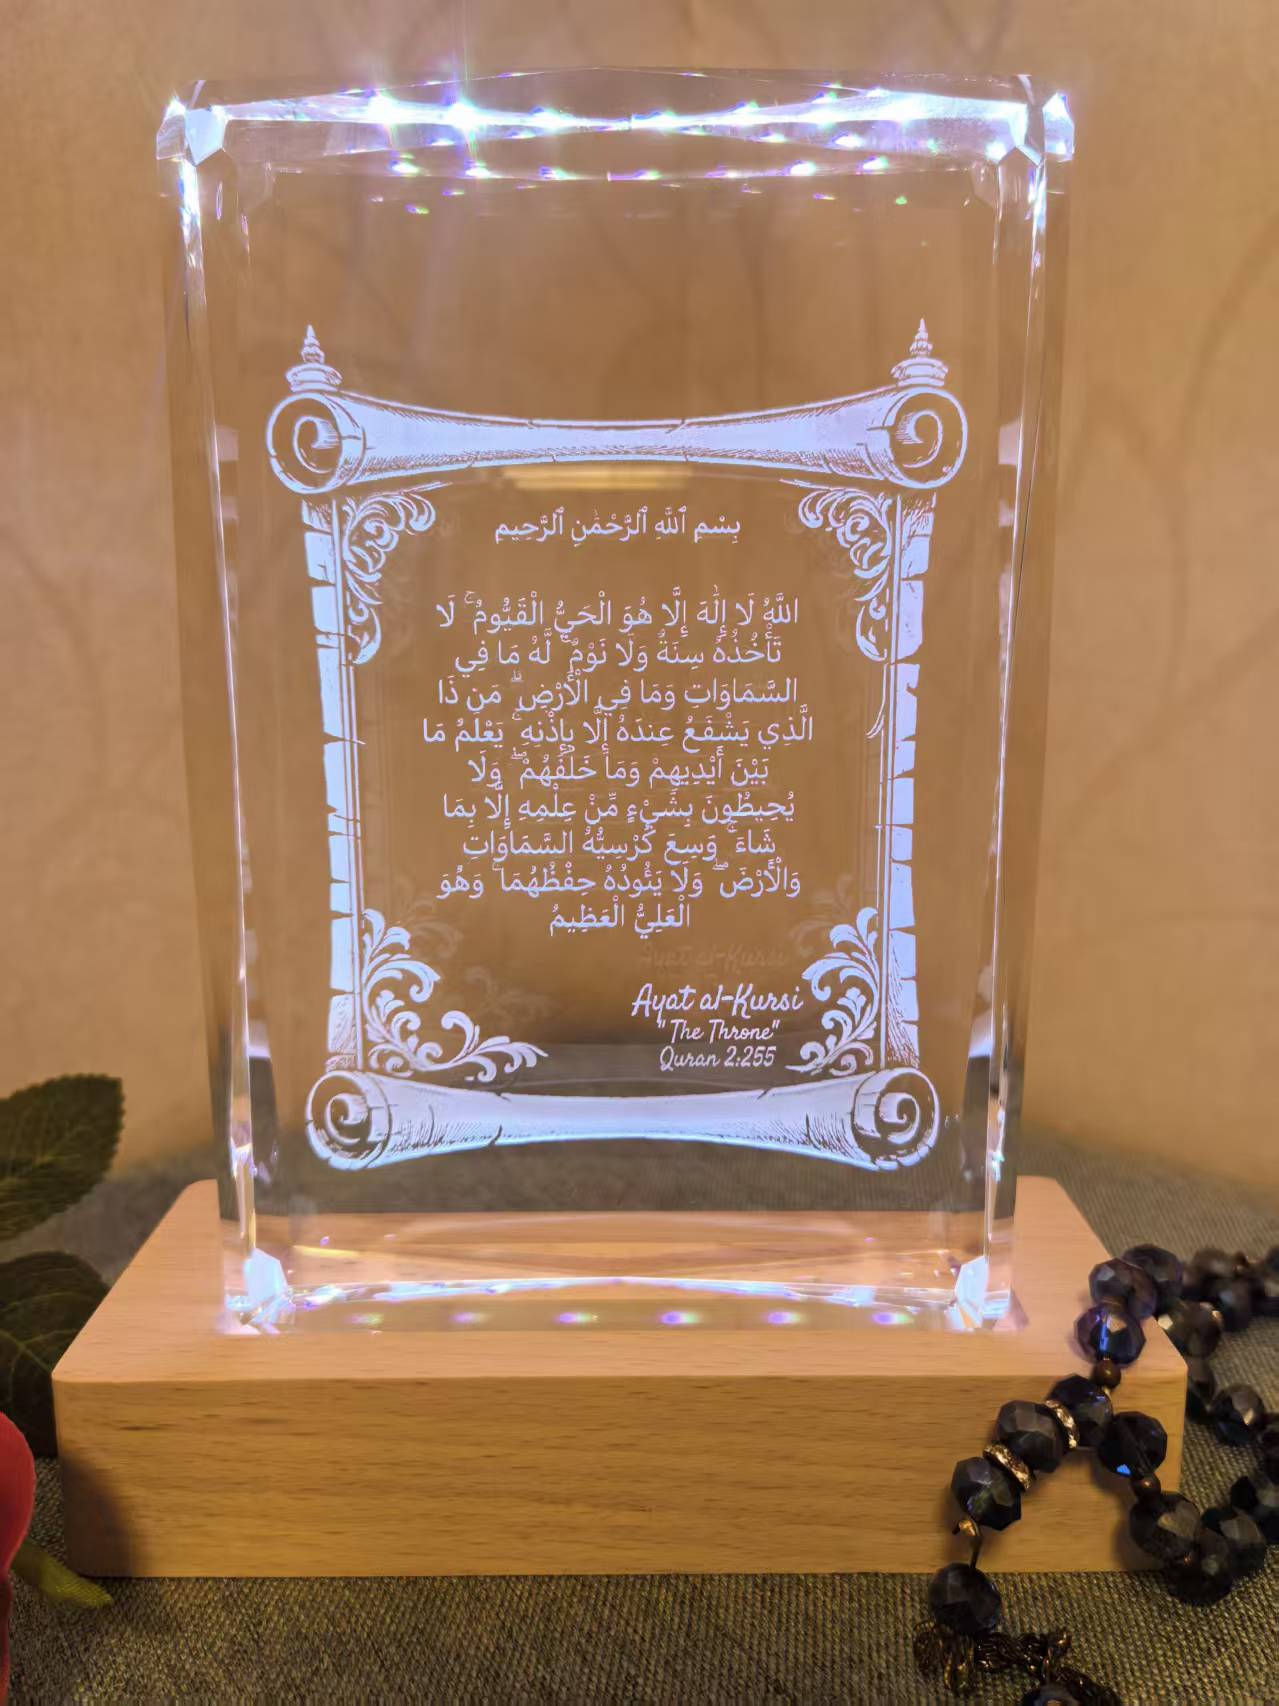 بِسْمِ ٱللَّهِ ٱلرَّحْمَٰنِ ٱلرَّحِيمِ
اللَّهُ لَا إِلَٰهَ إِلَّا هُوَ الْحَيُّ الْقَيُّومُ ۚ لَا
تَأْخُذُهُ سِنَةٌ وَلَا نَوْمٌ ۚ لَّهُ مَا فِي
السَّمَاوَاتِ وَمَا فِي الْأَرْضِ ۗ مَن ذَا
الَّذِي يَشْفَعُ عِندَهُ إِلَّا بِإِذْنِهِ ۚ يَعْلَمُ مَا
بَيْنَ أَيْدِيهِمْ وَمَا خَلْفَهُمْ ۖ وَلَا
يُحِيطُونَ بِشَيْءٍ مِّنْ عِلْمِهِ إِلَّا بِمَا
شَاءَ ۚ وَسِعَ كُرْسِيُّهُ السَّمَاوَاتِ
وَالْأَرْضَ ۖ وَلَا يَئُودُهُ حِفْظُهُمَا ۚ وَهُوَ
الْعَلِيُّ الْعَظِيمُ
Ayat al-Kursi
"The Throne"
Quran 2:255